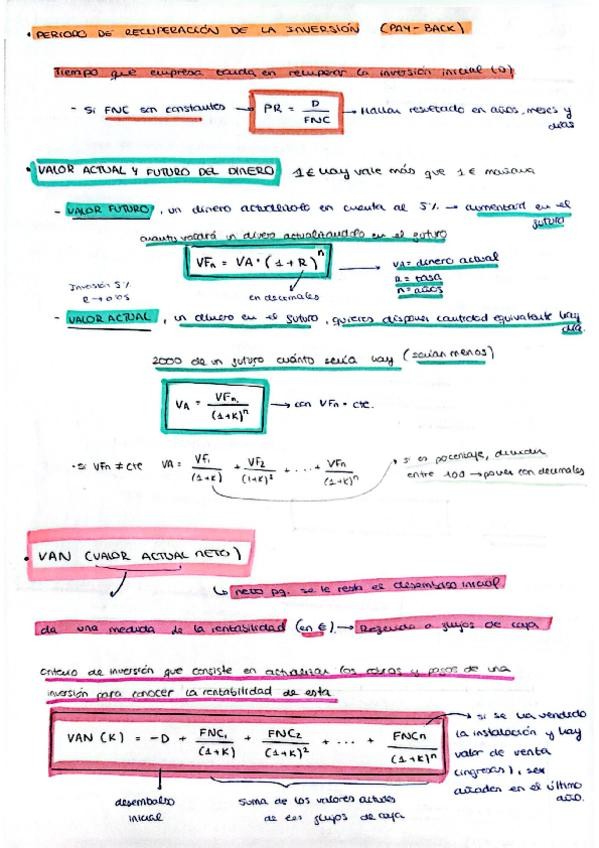 • PERIODO DE RECUPERACIÓN DE LA INVERSIÓN (PAY-BACK)
Tiempo que empresa tarda en recuperar la inversión inicial (D)
- Si FNC son constantes → PR = D / FNC → Hallar resultado en años, meses y
días
• VALOR ACTUAL Y FUTURO DEL DINERO 1€ hoy vale más que 1€ mañana
- VALOR FUTURO, un dinero actualizado en cuenta al 5% → aumentará en el
futuro
cuanto valdrá un dinero actualizandolo en el futuro
VFn = VA · (1+R)^n → VA = dinero actual
R = tasa
n = años
Inversión 5%
R → 0'05
en decimales
- VALOR ACTUAL, un dinero en el futuro, quieres disponer cantidad equivalente hoy
día.
2000 de un futuro cuánto sería hoy (serían menos)
VA = VFn / (1+K)^n → con VFn = cte.
· Si VFn ≠ cte VA = VF1 / (1+K) + VF2 / (1+K)^2 + ... + VFn / (1+K)^n
si es porcentaje, dividir
entre 100 → poner con decimales
• VAN (VALOR ACTUAL NETO)
neto pq. se le resta el desembolso inicial
da una medida de la rentabilidad (en €) → Referida a flujos de caja
criterio de inversión que consiste en actualizar los cobros y pagos de una
inversión para conocer la rentabilidad de esta
VAN (K) = -D + FNC1 / (1+K) + FNC2 / (1+K)^2 + ... + FNCn / (1+K)^n
si se ha vendido
la instalación y hay
valor de venta
(ingresos), se
añaden en el último
año.
desembolso
inicial
suma de los valores actuales
de los flujos de caja